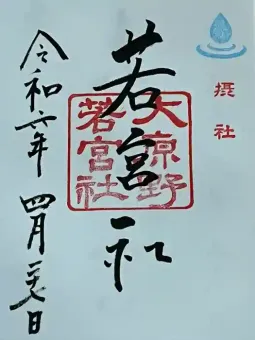 摂社
若宮社
大原野
若宮社
令和六年
四月二十七日